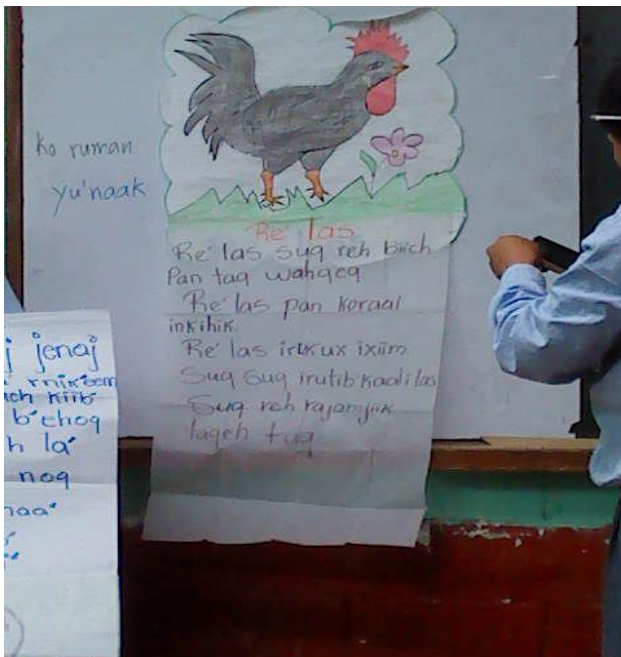 Ko ruman
yu'naak
Re' las
Re' las suq reh biich
Pan taq wahqeq
Re' las pan koraal
inkihik.
Re' las irikux ixiim
Suq suq irutib kaalilas
Suq reh rajanjiik
laqeh tuq
j jenaj
kiib'
b'ehoq
h la'
noq
haa'